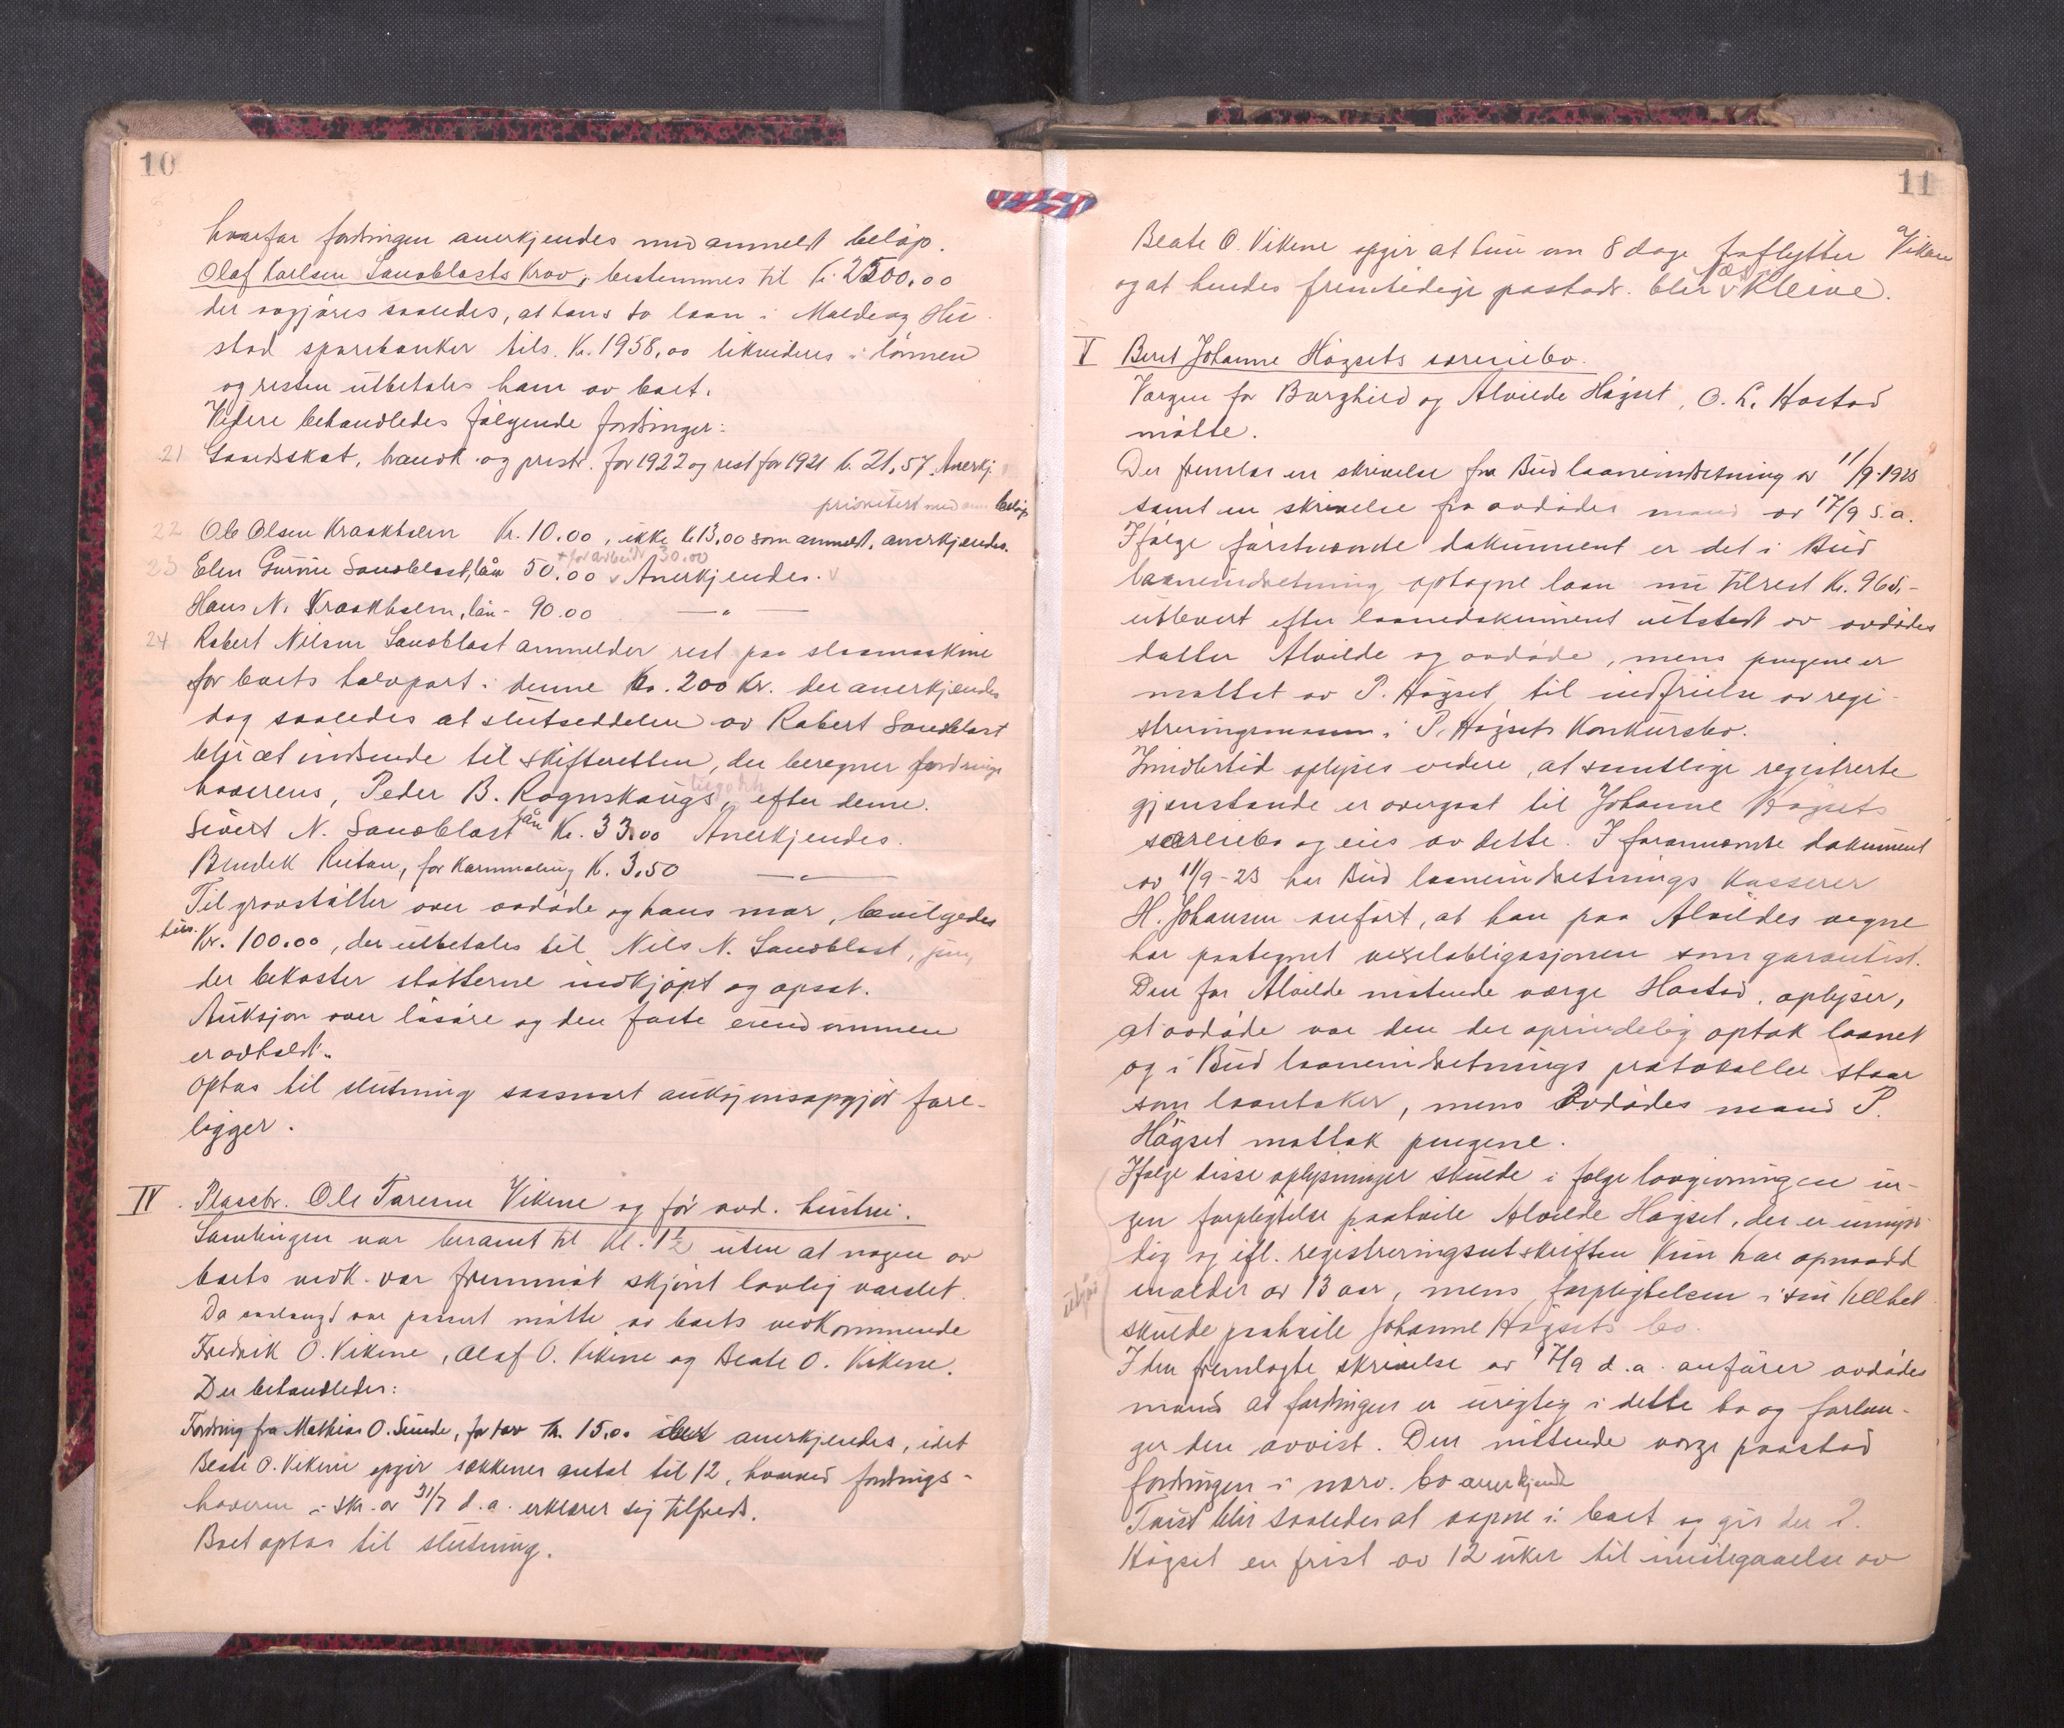 10
hvorfor fordringen anerkjendes med anmeldt beløp.
Olaf Karlsen Sandblasts krav, bestemmes til kr. 2500.00
der avgjøres saaledes, at hans to laan i Molde og Hu-
stad sparebanker tils. Kr. 1958,00 likvideres i lønnen
og resten utbetales ham av boet.
Videre behandledes følgende fordringer:
21 Landsskat, brandk. og prestr. for 1922 og rest for 1921 kr. 21,57. Anerkj.
prioritert med anm beløp
22 Ole Olsen Kraakholm Kr. 10.00, ikke kr 13,00 som anmeldt, anerkjendes.
+ for arbeide 30.00
23 Elen Gurine Sandblast, lån 50.00 v Anerkjendes. v
Hans N. Kraakholm, lån - 90.00 — " —
24 Robert Nilsen Sandblast anmelder rest paa slaamaskine
for boets halvpart i denne kr. 200 kr. der anerkjendes
dog saaledes at slutseddelen av Robert Sandblast
blir at indsende til skifteretten, der beregner fordrings-
haverens, Peder B. Rognskaugs, tilgodeh. efter denne.
Sivert N. Sandblast lån Kr. 33.00 Anerkjendes.
Bendik Rietan, for kornmaling K. 3.50 — " —
Til gravstøtter over avdøde og hans mor, bevilgedes
tils. Kr. 100.00, der utbetales til Nils N. Sandblast, jun,
der bekoster støtterne indkjøpt og opsat.
Auksjon over løsøre og den faste eiendommen
er avholdt.
Optas til slutning saasnart auksjonsopgjør fore-
ligger.
IV. Pladsbr. Ole Taresen Vikene og før avd. hustru.
Samlingen var berammet til kl. 1½ uten at nogen av
boets vedk. var fremmøt skjønt lovlig varslet.
Da var passert møtte av boets vedkommende
Fredrik O. Vikene, Olaf O. Vikene og Beate O. Vikene.
Der behandledes:
Fordring fra Mathias O. Sunde, for tov kr. 15.00 anerkjendes, idet
Beate O. Vikene opgir sækkenes antal til 12, hvorved fordrings-
haveren i skr. av 31/7 d.a. erklærer sig tilfreds.
Boet optas til slutning.
11
Beate O. Vikene opgir at hun om 8 dage fraflytter Vikene
og at hendes fremtidige postadr. blir pr. Kleive.
V Beret Johanne Høgsets særeiebo.
Vergen for Borghild og Alvilde Høgset, O. L. Hostad
møtte.
Der fremlas en skrivelse fra Bud laaneindretning av 11/9-1923
samt en skrivelse fra avdødes mand av 17/9 s.a.
Ifølge førstnævnte dokument er det i Bud
laaneindretning optagne laan nu tilrest Kr. 960,-
utlevert efter laanedokument utstedt av avdødes
datter Alvilde og avdøde, mens pengene er
mottat av P. Høgset til indfrielse av regi-
streringsmassen i P. Høgsets konkursbo.
Imidlertid oplyses videre, at samtlige registrerte
gjenstande er overgaat til Johanne Høgsets
særeiebo og eies av dette. I forannævnte dokument
av 11/9-23 har Bud laaneindretnings kasserer
H. Johansen anført, at han paa Alvildes vegne
har paategnet vexelobligasjonen som garantist.
Den for Alvilde møtende værge Hostad, oplyser,
at avdøde var den der oprindelig optok laanet
og i Bud laaneindretnings protokoller staar
som laantaker, mens avdødes mand P.
Høgset mottok pengene.
Ifølge disse oplysninger skulde i følge lovgivningen in-
gen forpligtelse paahvile Alvilde Høgset, der er umyn-
dig og ifl. registreringsutskriften kun har opnaadd
en alder av 13 aar, mens forpligtelsen i sin helhet
utgår
skulde paahvile Johanne Høgsets bo.
I den fremlagte skrivelse av 17/9 d.a. anfører avdødes
mand at fordringen er uriktig i dette bo og forlan-
ger den avvist. Den møtende værge paastod
fordringen i nærv. bo anerkjendt
Tvist blir saaledes at aapne i boet og gis der P.
Høgset en frist av 12 uker til imøtegaaelse av